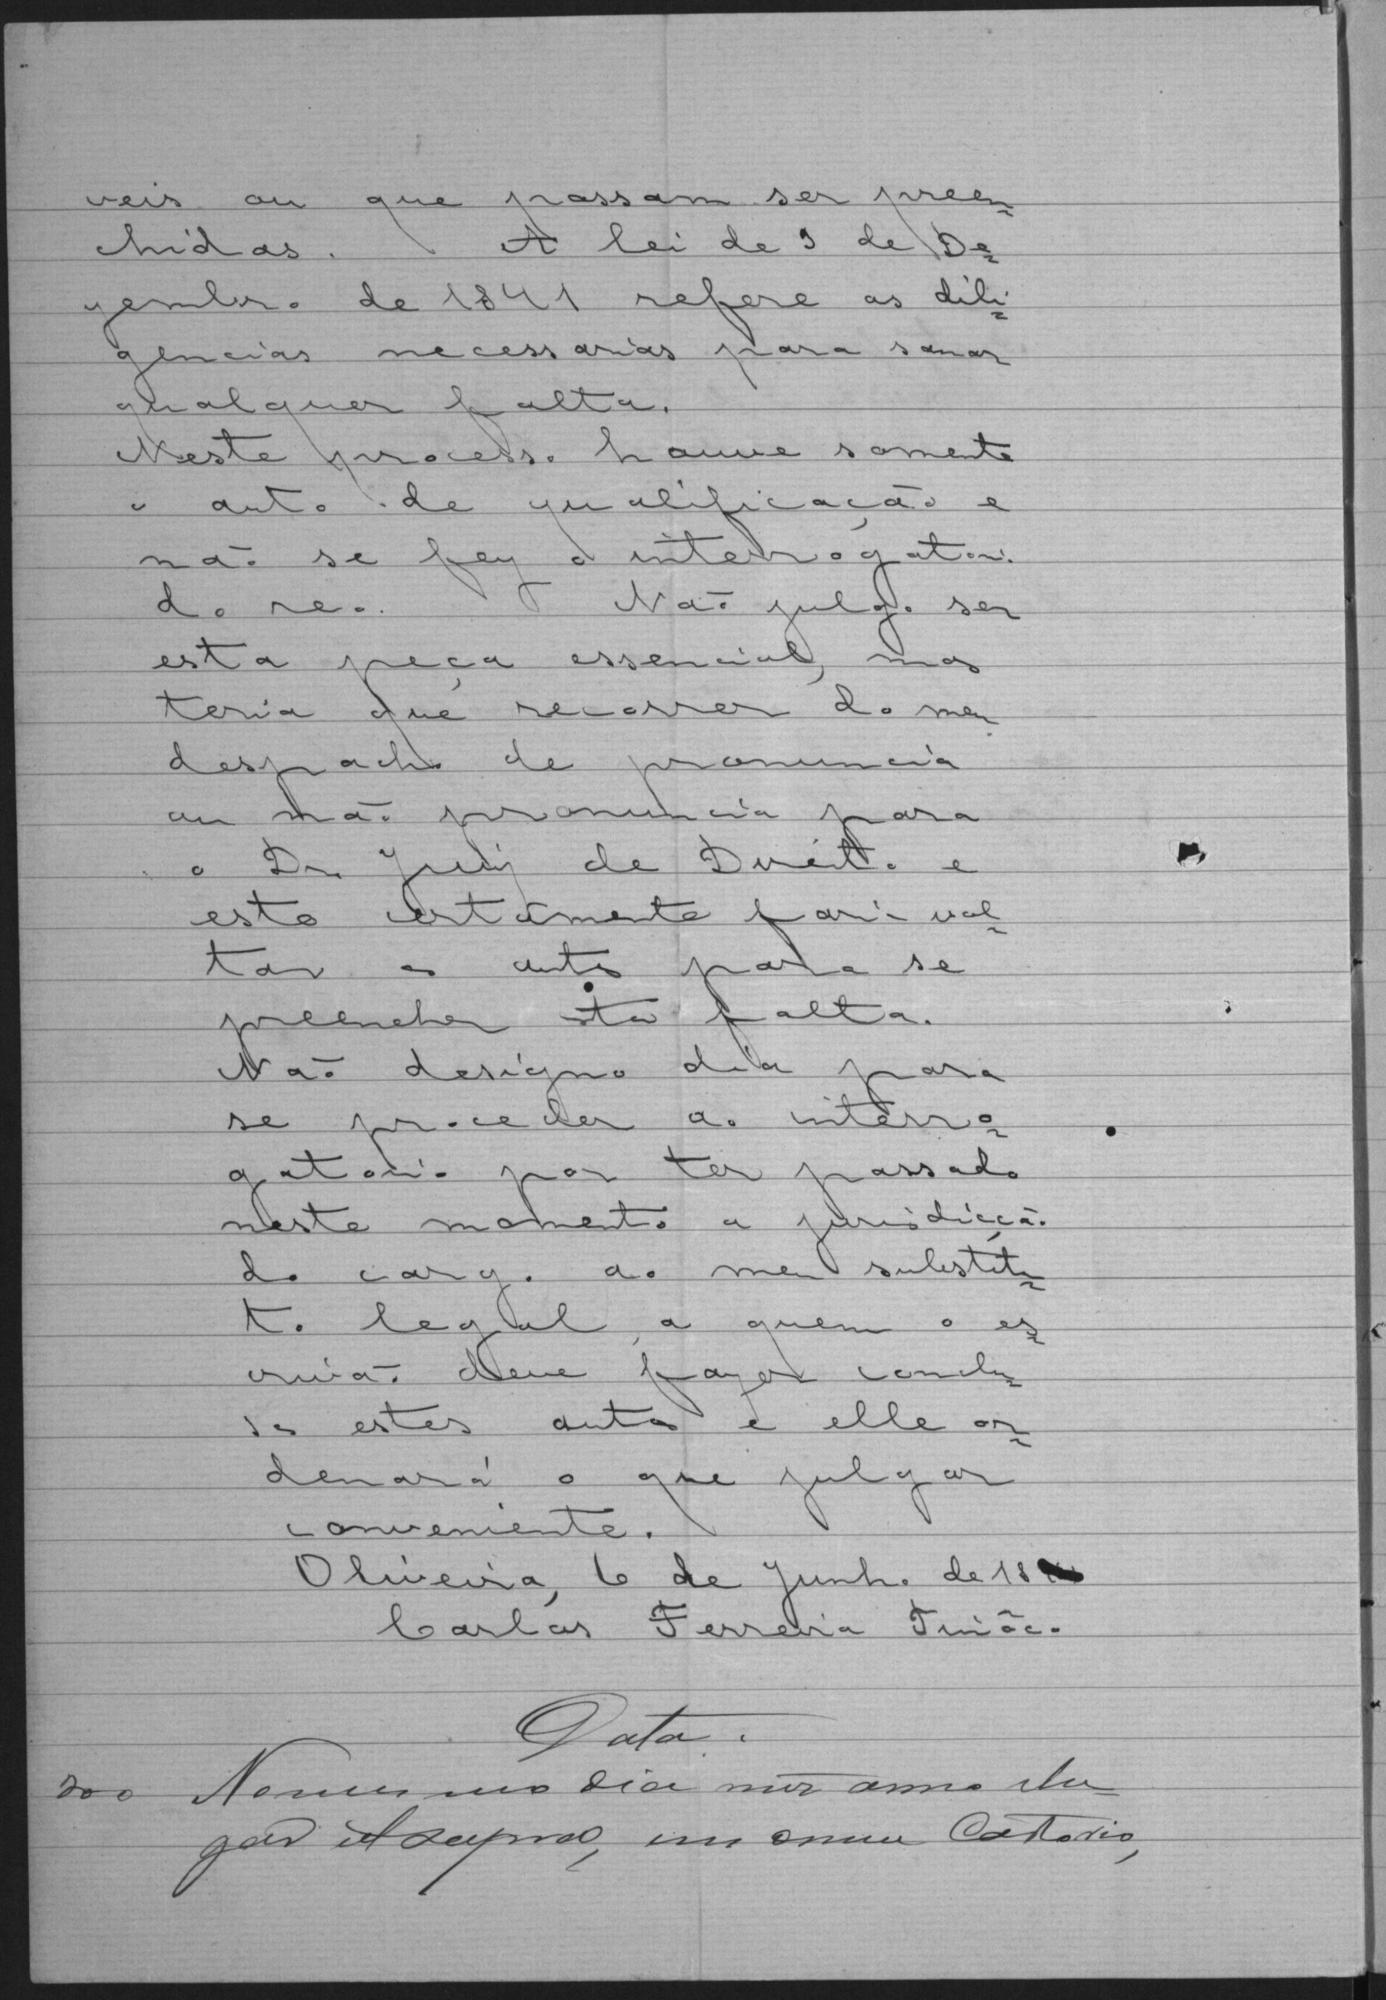 veis ou que possam ser preen=
chidas. A lei de 3 de De=
zembro de 1841 refere as dili=
gencias necessarias para sanar
qualquer falta.
Neste processo houve somente
o auto de qualificação e
não se fez o interrogatorio
do reo. Não julgo ser
esta peça essencial, mas
teria que recorrer do meu
despacho de pronuncia
ou não pronuncia para
o Dr. Juiz de Direito e
este certamente faria vol=
tar os autos para se
preencher esta falta.
Não designo dia para
se proceder ao interro=
gatorio por ter passado
neste momento a jurisdicção
do cargo ao meu substitu=
to legal, a quem o es=
crivão deve fazer conclu=
sos estes autos e elle or=
denará o que julgar
conveniente.
Oliveira, 6 de Junho de 18
Carlos Ferreira
Data.
No mesmo dia mez anno e lu=
gar supra, em meu Cartorio,